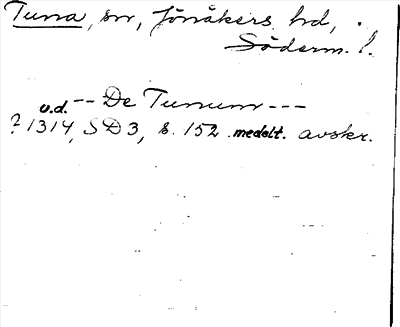 Tuna, sn, Jönåkers hd,
Söderm. l.
u.d. -- De Tunum ---
? 1314, SD 3, s. 152 medelt. avskr.